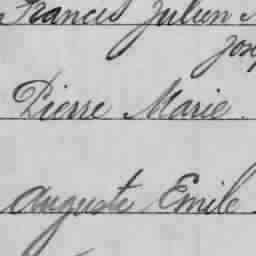 Francis Julien
Pierre Marie
Auguste Emile